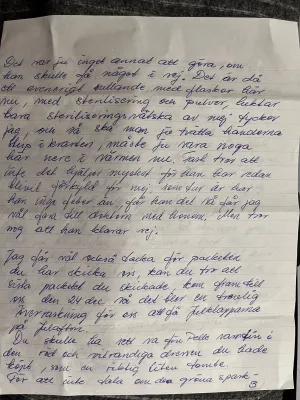 Det var ju inget annat att göra, om
han skulle få något i sej. Det är då
ett evenerigt kullande med flaskor här
nu, med sterilisering och pulver, luktar
bara steriliseringsvätska av mej tycker
jag, och så ska man ju tvätta händerna
i kranen, måste ju vara noga
här nere i värmen nu. Fast tror att
inte det hjälper mycket för han har redan
blivit förkyld för mej, som tur är har
han inge feber än, får han det så får jag
väl fara till doktorn med honom. Men tror
nog att han klarar sej.
Jag får väl också tacka för paketen
du har skickat oss, kan du tro att
sista paketet du skickade, kom fram till
oss den 24 dec så det blev en trevlig
överraskning för oss att få julklapparna
på julafton.
Du skulle ha sett va fin Pelle var i
den röd och vitrandiga dressen du hade
köpt, som en riktig liten tomte.
För att inte tala om den gröna spark-
3